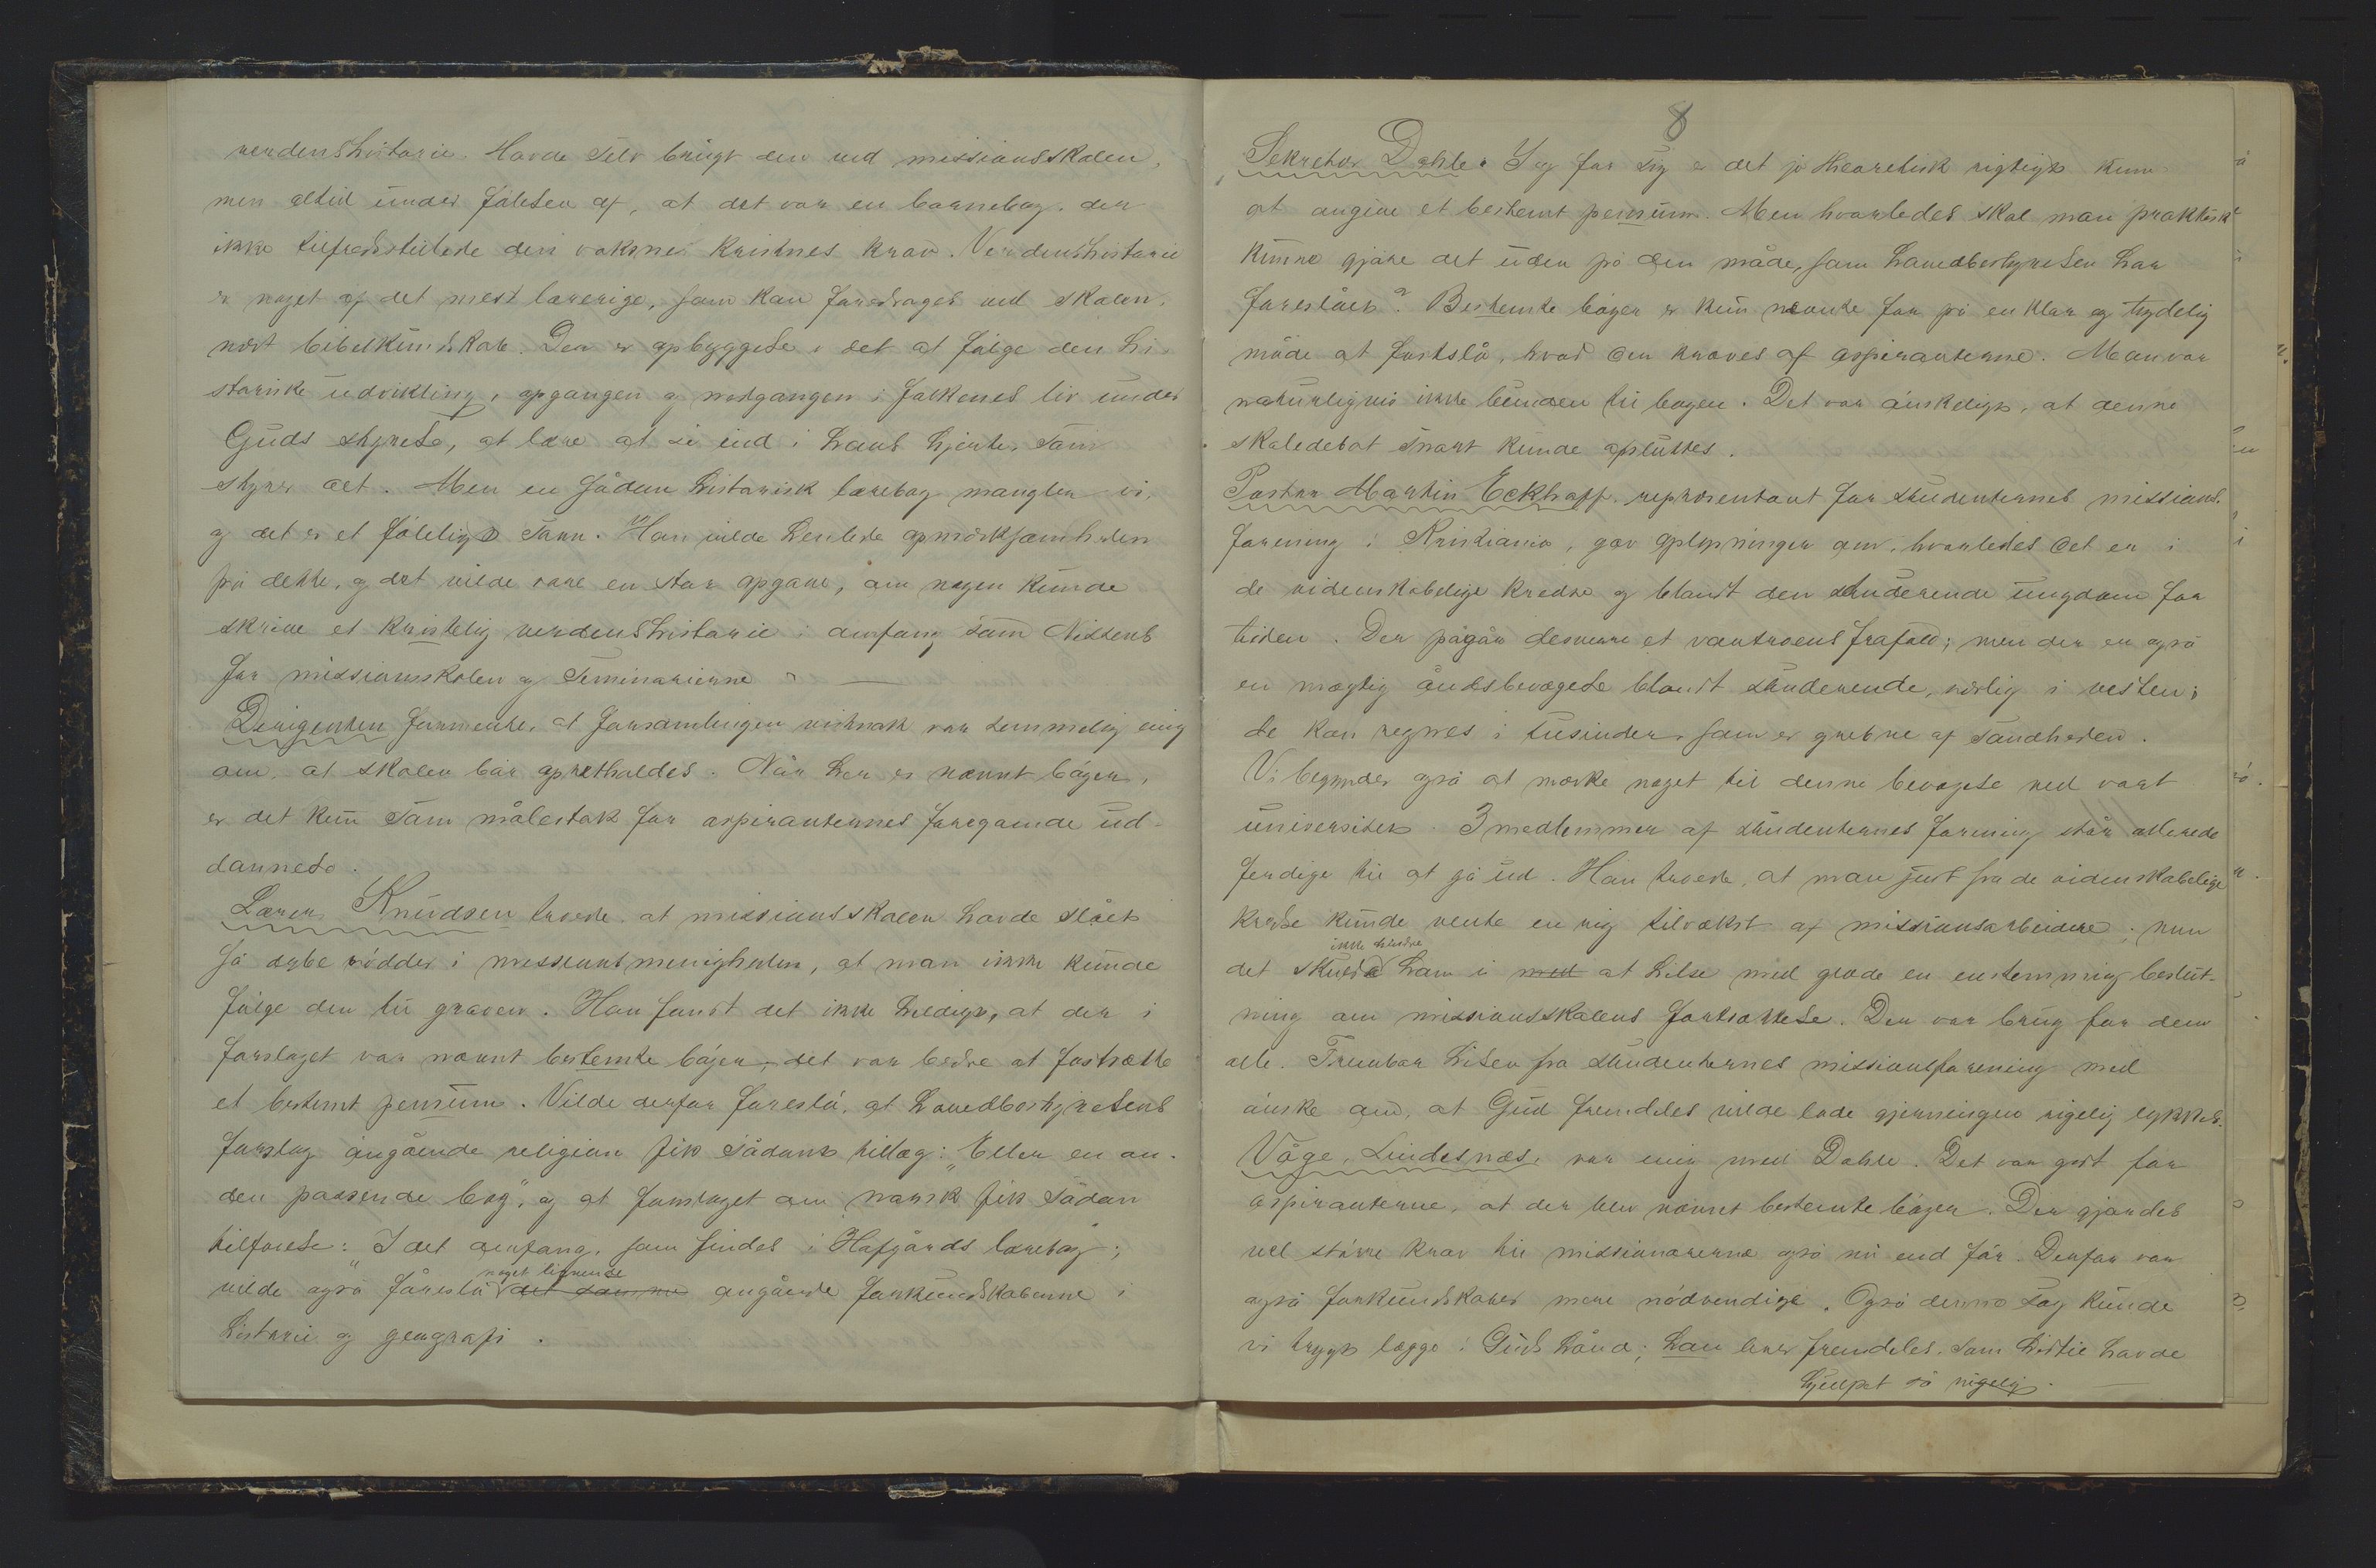 verdenshistorie. Havde selv brugt den ved missionsskolen,
men altid under følelsen af, at det var en barnebog, der
ikke tilfredsstillede den voksnes kristnes krav. Verdenshistorie
er noget af det mest lærerige, som kan foredrages ved skolen,
næst bibelkundskab. Der er opbyggelse i det at følge den hi-
storiske udvikling, opgangen og nedgangen i folkenes liv under
Guds styrelse, at lære at se ind i hans hjerte, som
styrer det. Men en sådan historisk lærebog mangler vi,
og det er et føleligt savn. Han vilde henlede opmærksomheden
på dette, og det vilde være en stor opgave, om nogen kunde
skrive et kristelig verdenshistorie i omfang som Nissens
for missionsskolen og seminarierne. —
Dirigenten formente, at forsamlingen vistnok var temmelig enig
om, at skolen bør opretholdes. Når her er nævnt bøger,
er det kun som målestok for aspiranternes foregående ud-
dannelse.
Lærer Knudsen troede, at missionsskolen havde slået
så dybe rødder i missionsmenigheden, at man ikke kunde
følge den til graven. Han fandt det ikke heldigt, at der i
forslaget var nævnt bestemte bøger; det var bedre at fastsætte
et bestemt pensum. Vilde derfor foreslå, at hovedbestyrelsens
forslag angående religion fik sådant tillæg: "Eller en an-
den passende bog", og at forslaget om norsk fik sådan
tilføielse: "I det omfang, som findes i Hofgårds lærebog;
noget lignende
vilde også foreslå det samme angående forkundskaberne i
historie og geografi.
8
Sekretær Dahle: I og for sig er det jo theoretisk rigtigt kun
at angive et bestemt pensum. Men hvorledes skal man praktisk
kunne gjøre det uden på den måde, som hovedbestyrelsen har
foreslået? Bestemte bøger er kun nævnte for på en klar og tydelig
måde at fastslå, hvad der kræves af aspiranterne. Man var
naturligvis ikke bunden til bogen. Det var ønskeligt, at denne
skoledebat snart kunde afsluttes.
Pastor Martin Eckhoff, repræsentant for studenternes missions-
forening i Kristiania, gav oplysninger om, hvorledes det er i
de videnskabelige kredse og blandt den studerende ungdom for
tiden. Der pågår desværre et vantroens frafald; men der er også
en mægtig åndsbevægelse blandt studerende, særlig i vesten;
de kan regnes i tusinder, som er grebne af sandheden.
Vi begynder også at mærke noget til denne bevægelse ved vort
universitet. 3 medlemmer af studenternes forening står allerede
færdige til at gå ud. Han troede, at man just fra de videnskabelige
kredse kunde vente en rig tilvækst af missionsarbeidere; men
ikke hindre
det skulde ham i med at hilse med glæde en enstemmig beslut-
ning om missionsskolens fortsættelse. Der var brug for dem
alle. Frembar hilsen fra studenternes missionsforening med
ønske om, at Gud fremdeles vilde lade gjerningen rigelig lykkes.
Våge, Lindesnæs, var enig med Dahle. Det var godt for
aspiranterne, at der blev nævnt bestemte bøger. Der gjordes
vel større krav til missionærerne også nu end før. Derfor var
også forkundskaber mere nødvendige. Også denne sag kunde
vi trygt lægge i Guds hånd; han hører fremdeles, som hidtil havde
hjulpet så rigelig. —